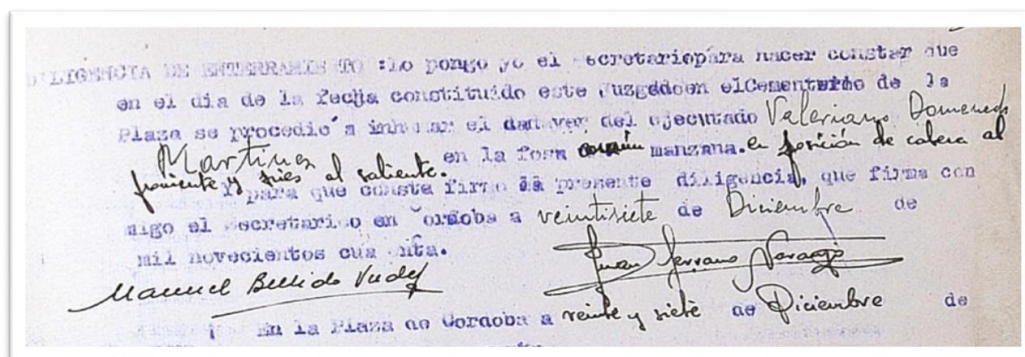 DILIGENCIA DE ENTERRAMIENTO :Lo pongo yo el secretariopara hacer constar que
en el dia de la fecha constituido este Juzgadoen elCementerio de la
Plaza se procedio a inhumar el cadaver del ejecutado Valeriano Domenech
Martinez en la fosa común manzana. en posición de cabeza al
poniente y pies al saliente.
Y para que conste firmo la presente diligencia, que firma con
migo el secretario en Cordoba a veintisiete de Diciembre de
mil novecientos cuarenta.
Juan Serrano Naranjo
Manuel Bellido
En la Plaza de Cordoba a veinte y siete de Diciembre de